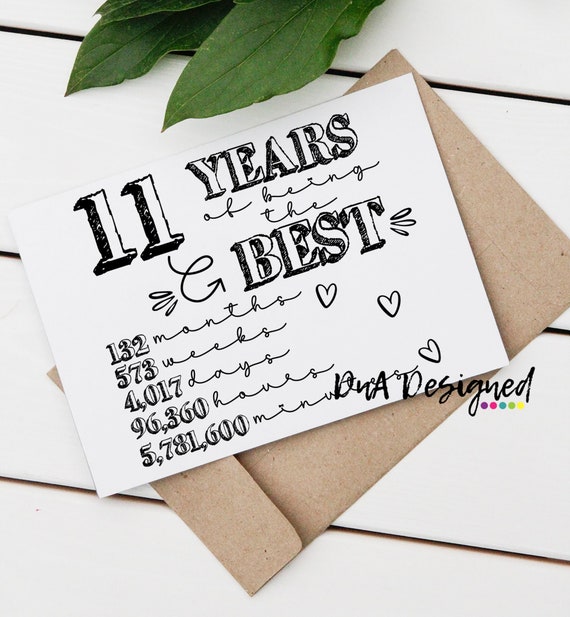 11 YEARS
of being
the
BEST
132 months
573 weeks
4,017 days
96,360 hours
5,781,600 minutes
DnA Designed